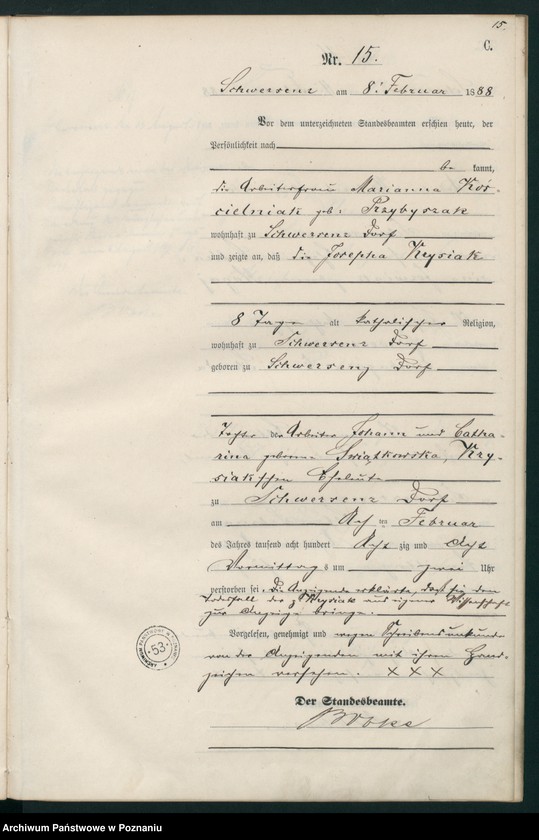 15.
C.
Nr. 15.
Schwersenz am 8t Februar 1888
Vor dem unterzeichneten Standesbeamten erschien heute, der
Persönlichkeit nach
be kannt,
die Arbeiterfrau Marianna Kos-
cielniak geb: Przybyszak
wohnhaft zu Schwersenz Dorf
und zeigte an, daß die Josepha Krysiak
8 Tage alt katholischer Religion,
wohnhaft zu Schwersenz Dorf
geboren zu Schwersenz Dorf
Tochter der Arbeiter Johann und Catha-
rina geborne Swiątkowska, Kry-
siak'schen Eheleute
zu Schwersenz Dorf
am Acht ten Februar
des Jahres tausend acht hundert Acht zig und Acht
Vormittag s um zwei Uhr
verstorben sei. Die Anzeigende erklärte, daß sie den
Todesfall der Krysiak aus eigener Wissenschaft
zur Anzeige bringe.
Vorgelesen, genehmigt und wegen Schreibensunkunde
von der Anzeigenden mit ihrem Hand-
zeichen versehen. XXX
Der Standesbeamte.
ARCHIWUM PAŃSTWOWE W POZNANIU
53
Archiwum Państwowe w Poznaniu